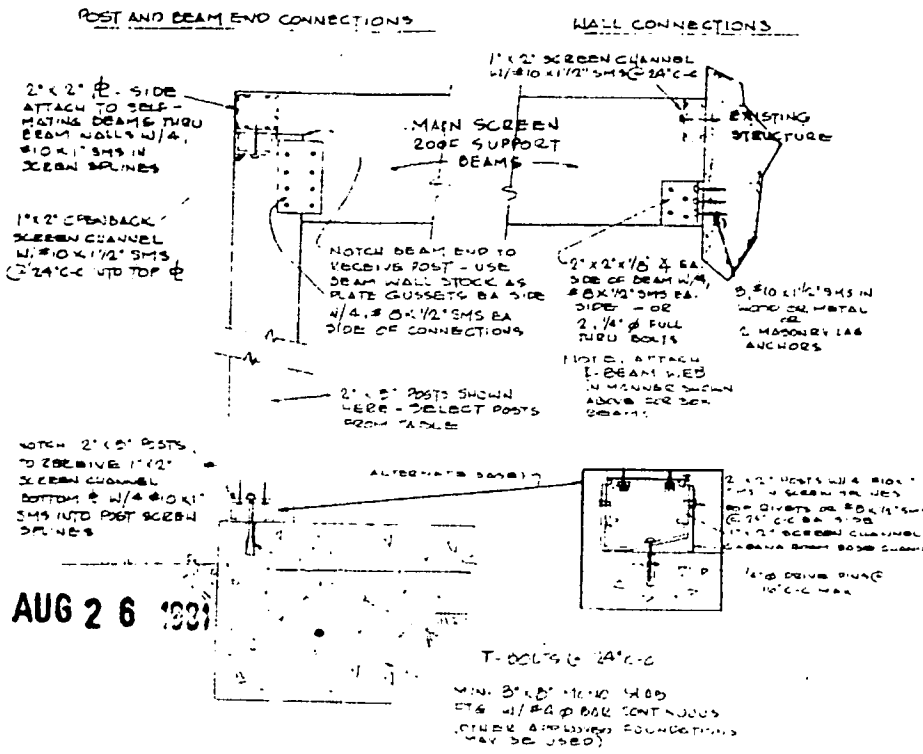 POST AND BEAM END CONNECTIONS
WALL CONNECTIONS
2" x 2" ⅊ - SIDE
ATTACH TO SELF-
MATING BEAMS THRU
BEAM WALLS W/4,
#10 x 1" SMS IN
SCREEN SPLINES
1" x 2" OPENBACK
SCREEN CHANNEL
W/#10 x 1 1/2" SMS
@ 24" C-C INTO TOP ⅊
MAIN SCREEN
ROOF SUPPORT
BEAMS
1" x 2" SCREEN CHANNEL
W/#10 x 1 1/2" SMS @ 24" C-C
EXISTING
STRUCTURE
NOTCH BEAM END TO
RECEIVE POST - USE
BEAM WALL STOCK AS
PLATE GUSSETS EA SIDE
W/4, #8 x 1/2" SMS EA
SIDE OF CONNECTIONS
2" x 2" x 1/8" ∠ EA.
SIDE OF BEAM W/4,
#8 x 1/2" SMS EA.
SIDE - OR
2, 1/4" ø FULL
THRU BOLTS
NOTE: ATTACH
I-BEAM WEB
IN MANNER SHOWN
ABOVE FOR BOX
BEAMS
3, #10 x 1 1/2" SMS IN
WOOD OR METAL
OR
2 MASONRY LAG
ANCHORS
2" x 3" POSTS SHOWN
HERE - SELECT POSTS
FROM TABLE
NOTCH 2" x 3" POSTS
TO RECEIVE 1" x 2"
SCREEN CHANNEL
BOTTOM ⅊ W/4 #10 x 1"
SMS INTO POST SCREEN
SPLINES
ALTERNATE BASE
2" x 2" POSTS W/4 #10 x 1"
SMS IN SCREW SPLINES
POP RIVETS OR #8 x 1/2" SMS
@ 24" C-C EA SIDE
1" x 2" SCREEN CHANNEL
CABANA ROOM BASE CHANNEL
1/4" ø DRIVE PINS @
C-C MAX
AUG 26 1981
T-BOLTS @ 24" C-C
MIN. 8" x 8" MONO SLAB
FTG W/#4 ø BAR CONTINUOUS
(OTHER APPROVED FOUNDATIONS
MAY BE USED)